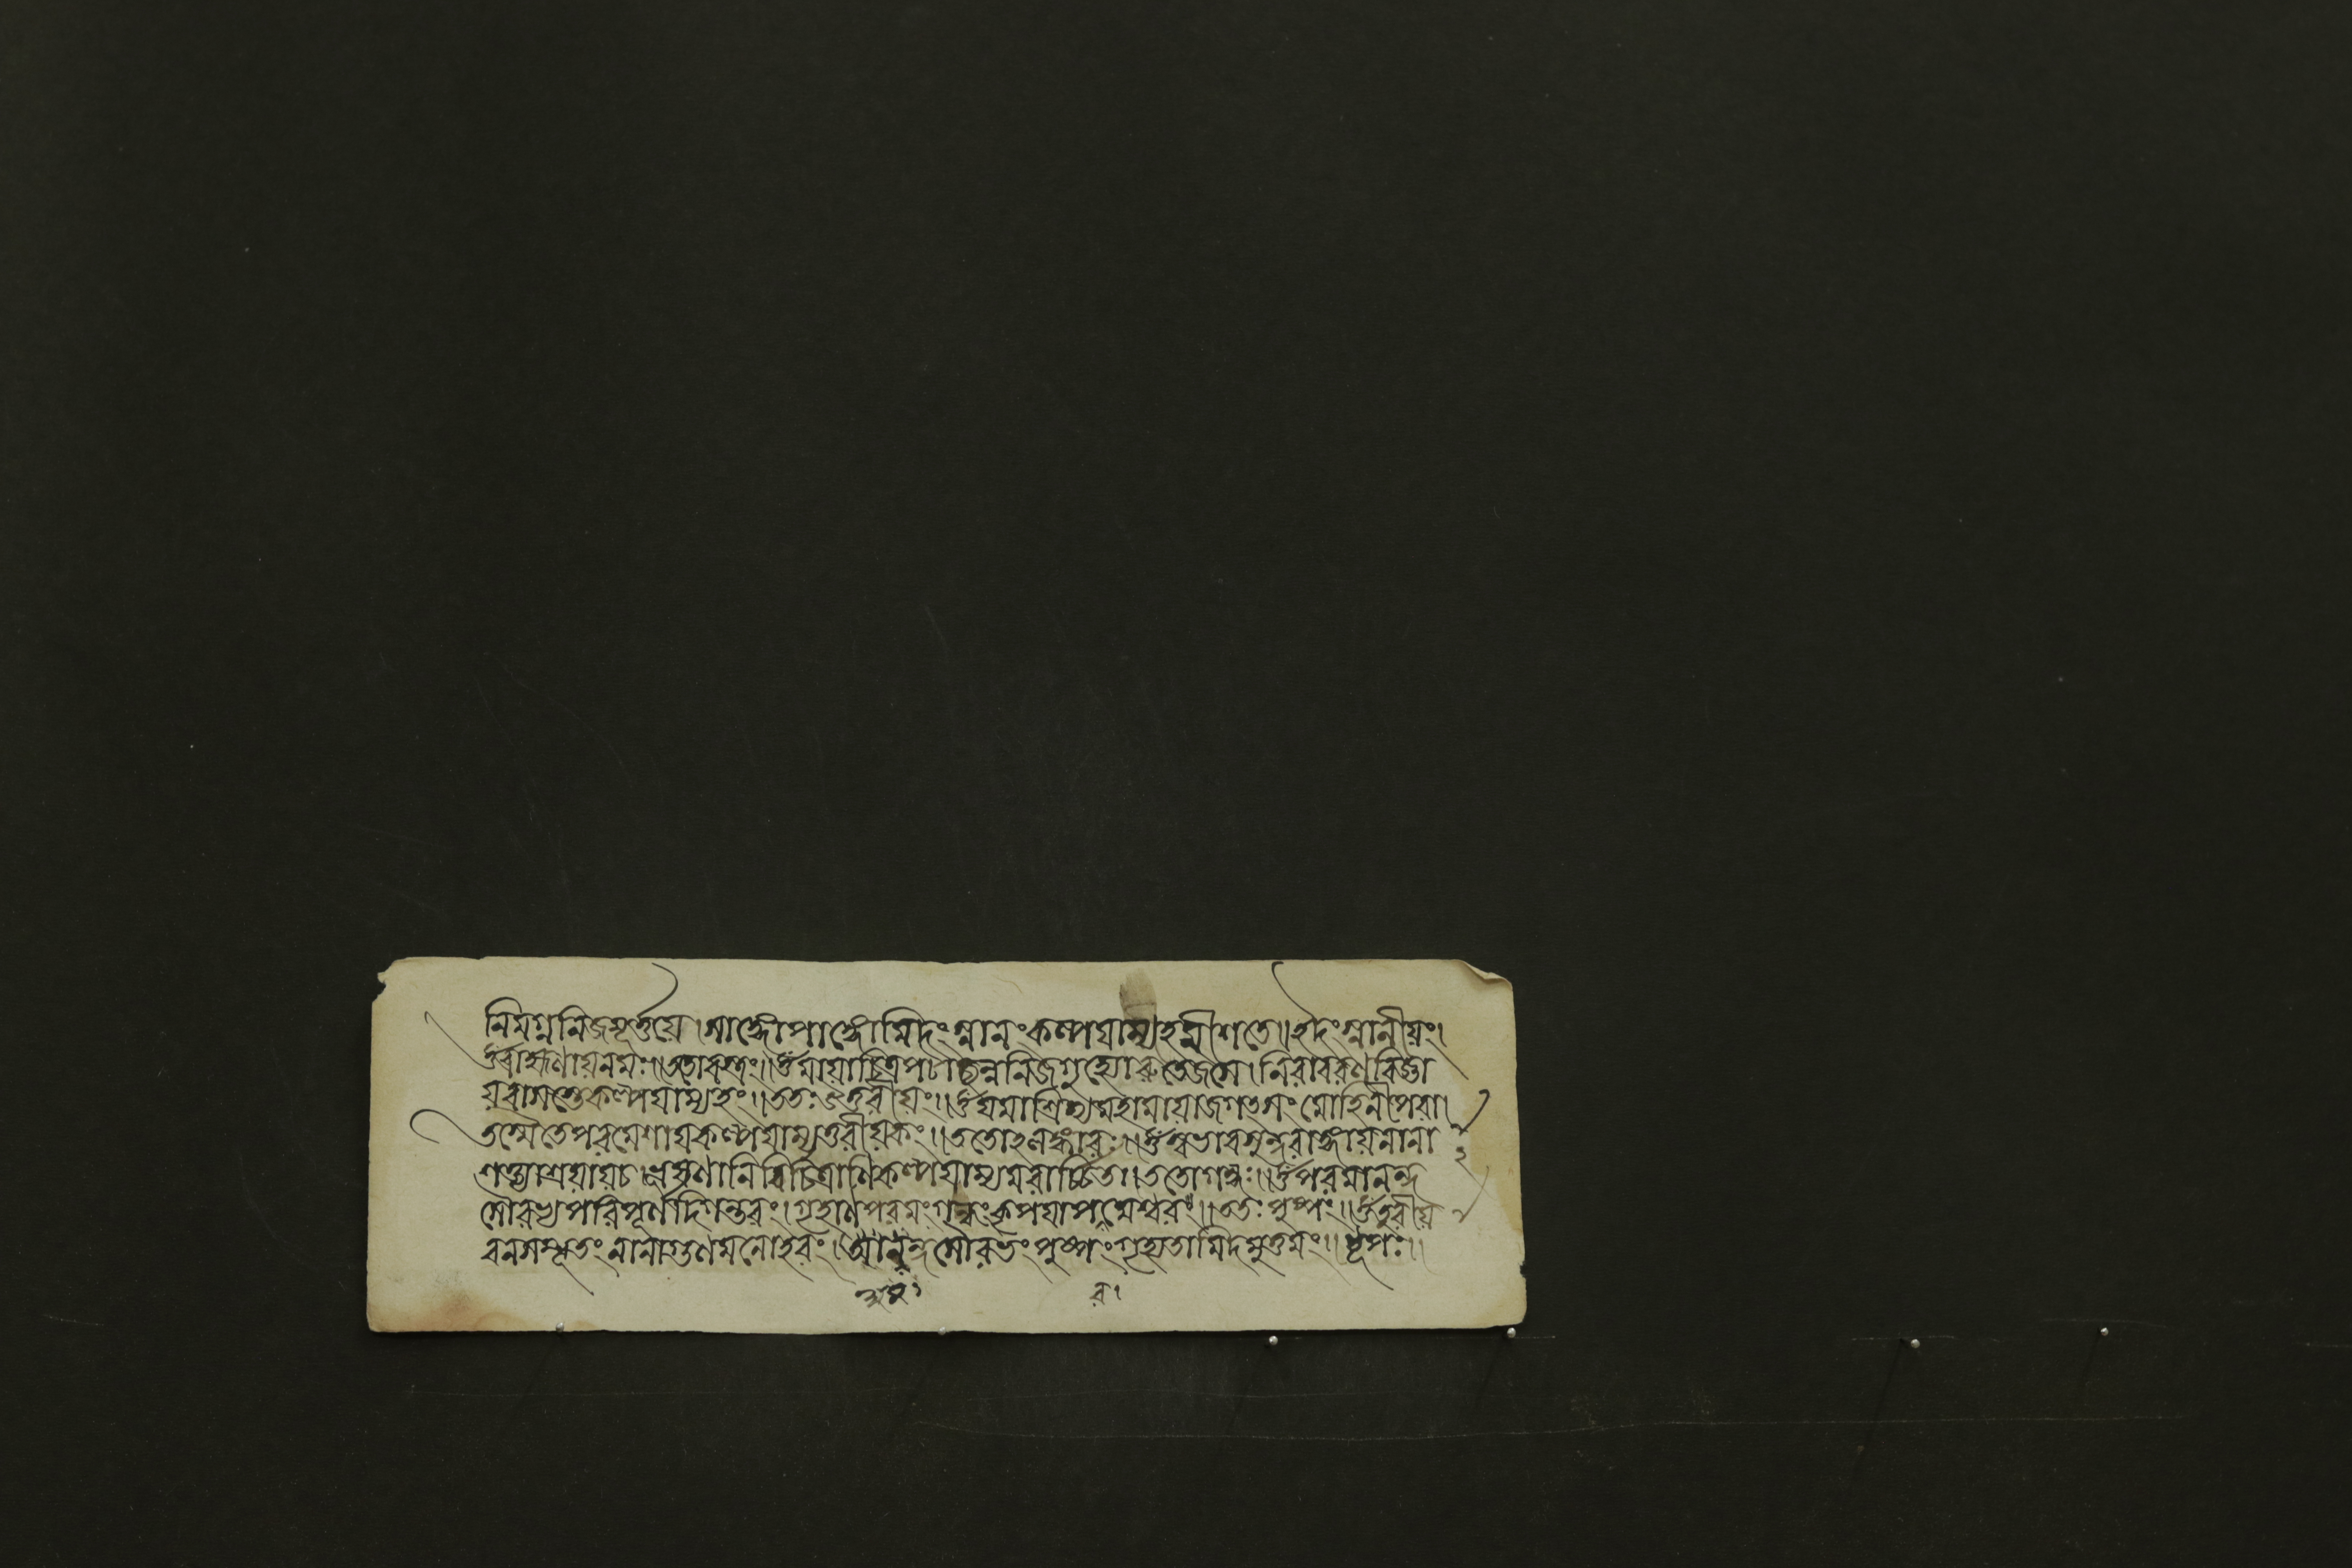 নিমগ্ননিজমূর্ত্তয়ে।সাঙ্গোপাঙ্গোমিদংস্নানংকল্পয়াম্যহমীশতে॥ইদংস্নানীয়ং।
ওঁব্রাহ্মণায়নমঃ॥ততোবস্ত্রং॥ওঁমায়াচিত্রপটাচ্ছন্ননিজগুহ্যোরুতেজসে।নিরাবরণবিজ্ঞা
য়বাসস্তেকল্পয়াম্যহং॥ততঃউত্তরীয়ং॥ওঁযমাশ্রিত্যমহামায়াজগৎসংমোহিনীপরা।
তস্মৈতেপরমেশায়কল্পয়াম্যুত্তরীয়কং॥ততোঽলঙ্কারঃ॥ওঁস্বভাবসুন্দরাঙ্গায়নানা
শক্ত্যাশ্রয়ায়চ।ভূষণানিবিচিত্রাণিকল্পয়াম্যমরার্চ্চিতা॥ততোগন্ধঃ॥ওঁপরমানন্দ
সৌরভ্যপরিপূর্ণদিগন্তরং।গৃহাণপরমংগন্ধংকৃপয়াপরমেশ্বরং॥ততঃপুষ্পং॥ওঁতুরীয়
বনসম্ভূতংনানাগুণমনোহরং।আনন্দসৌরভংপুষ্পংগৃহ্যতামিদমুত্তমং॥ধূপঃ॥
২
র।